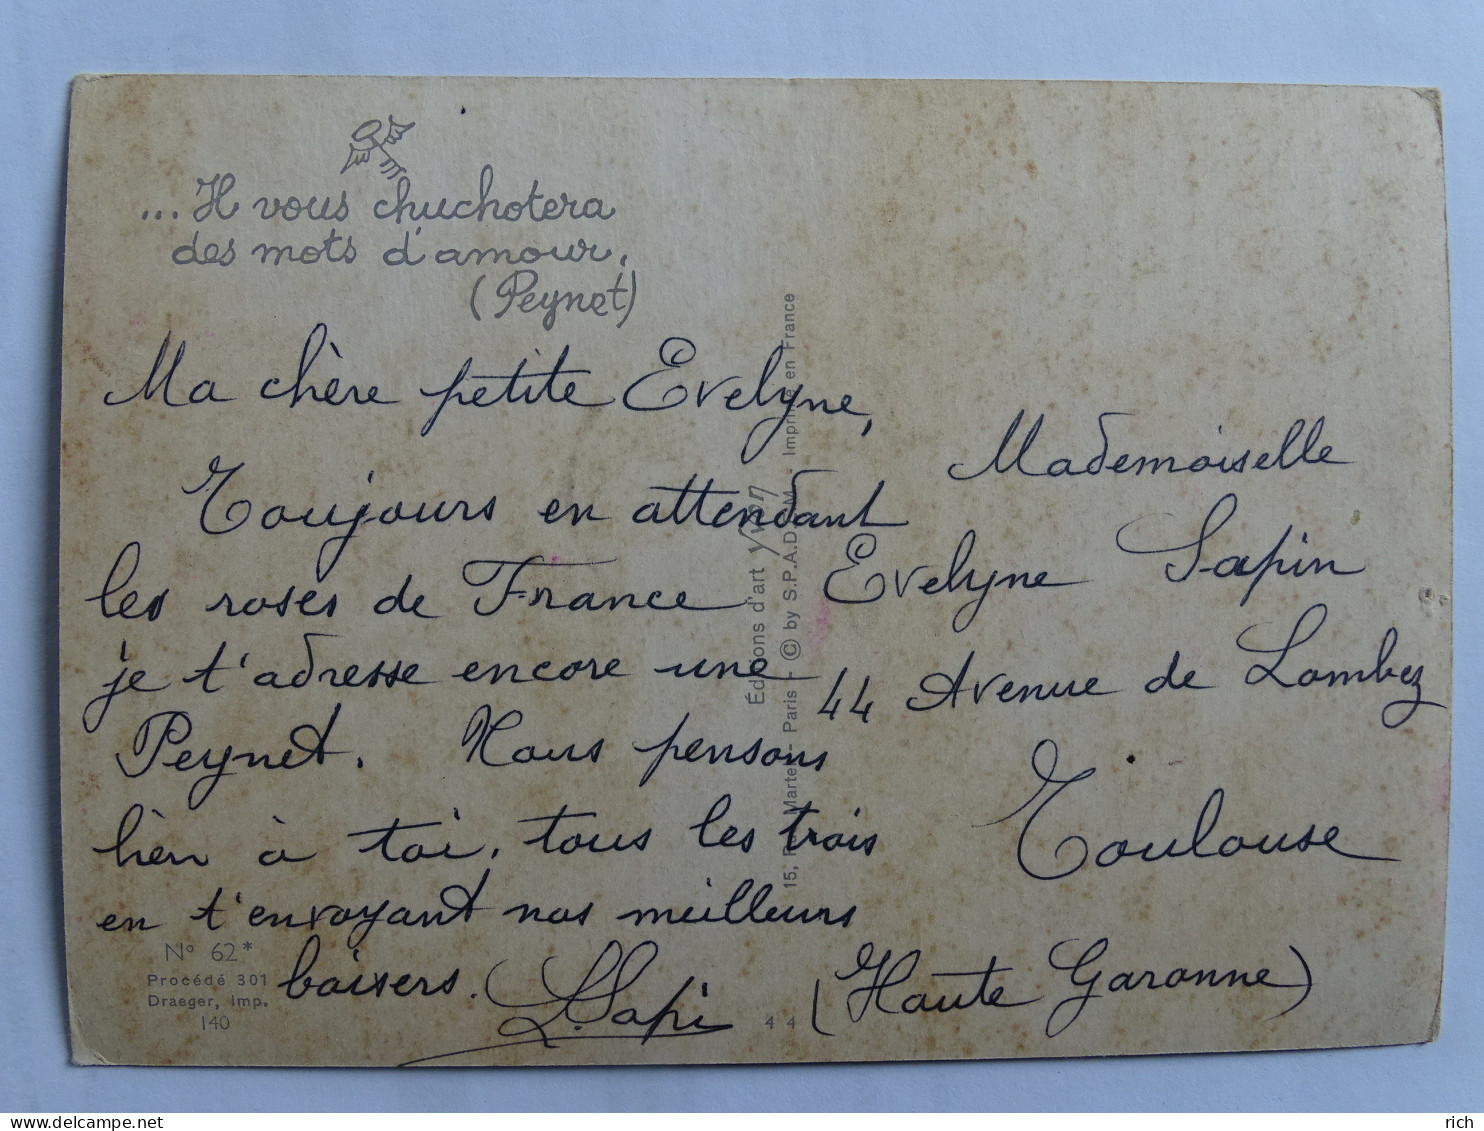 ...Il vous chuchotera
des mots d'amour.
(Peynet)
Ma chère petite Evelyne,
Toujours en attendant
les roses de France
je t'adresse encore une
Peynet. Nous pensons
bien à toi, tous les trois
en t'envoyant nos meilleurs
baisers.
N° 62*
Procédé 301
Draeger, Imp.
140
Éditions d'art Yvon
15, Martel - Paris - © by S.P.A.D.E.M. - Imprimé en France
Mademoiselle
Evelyne Sapin
44 Avenue de Lombez
Toulouse
(Haute Garonne)
4 4
delcampe.net
rich